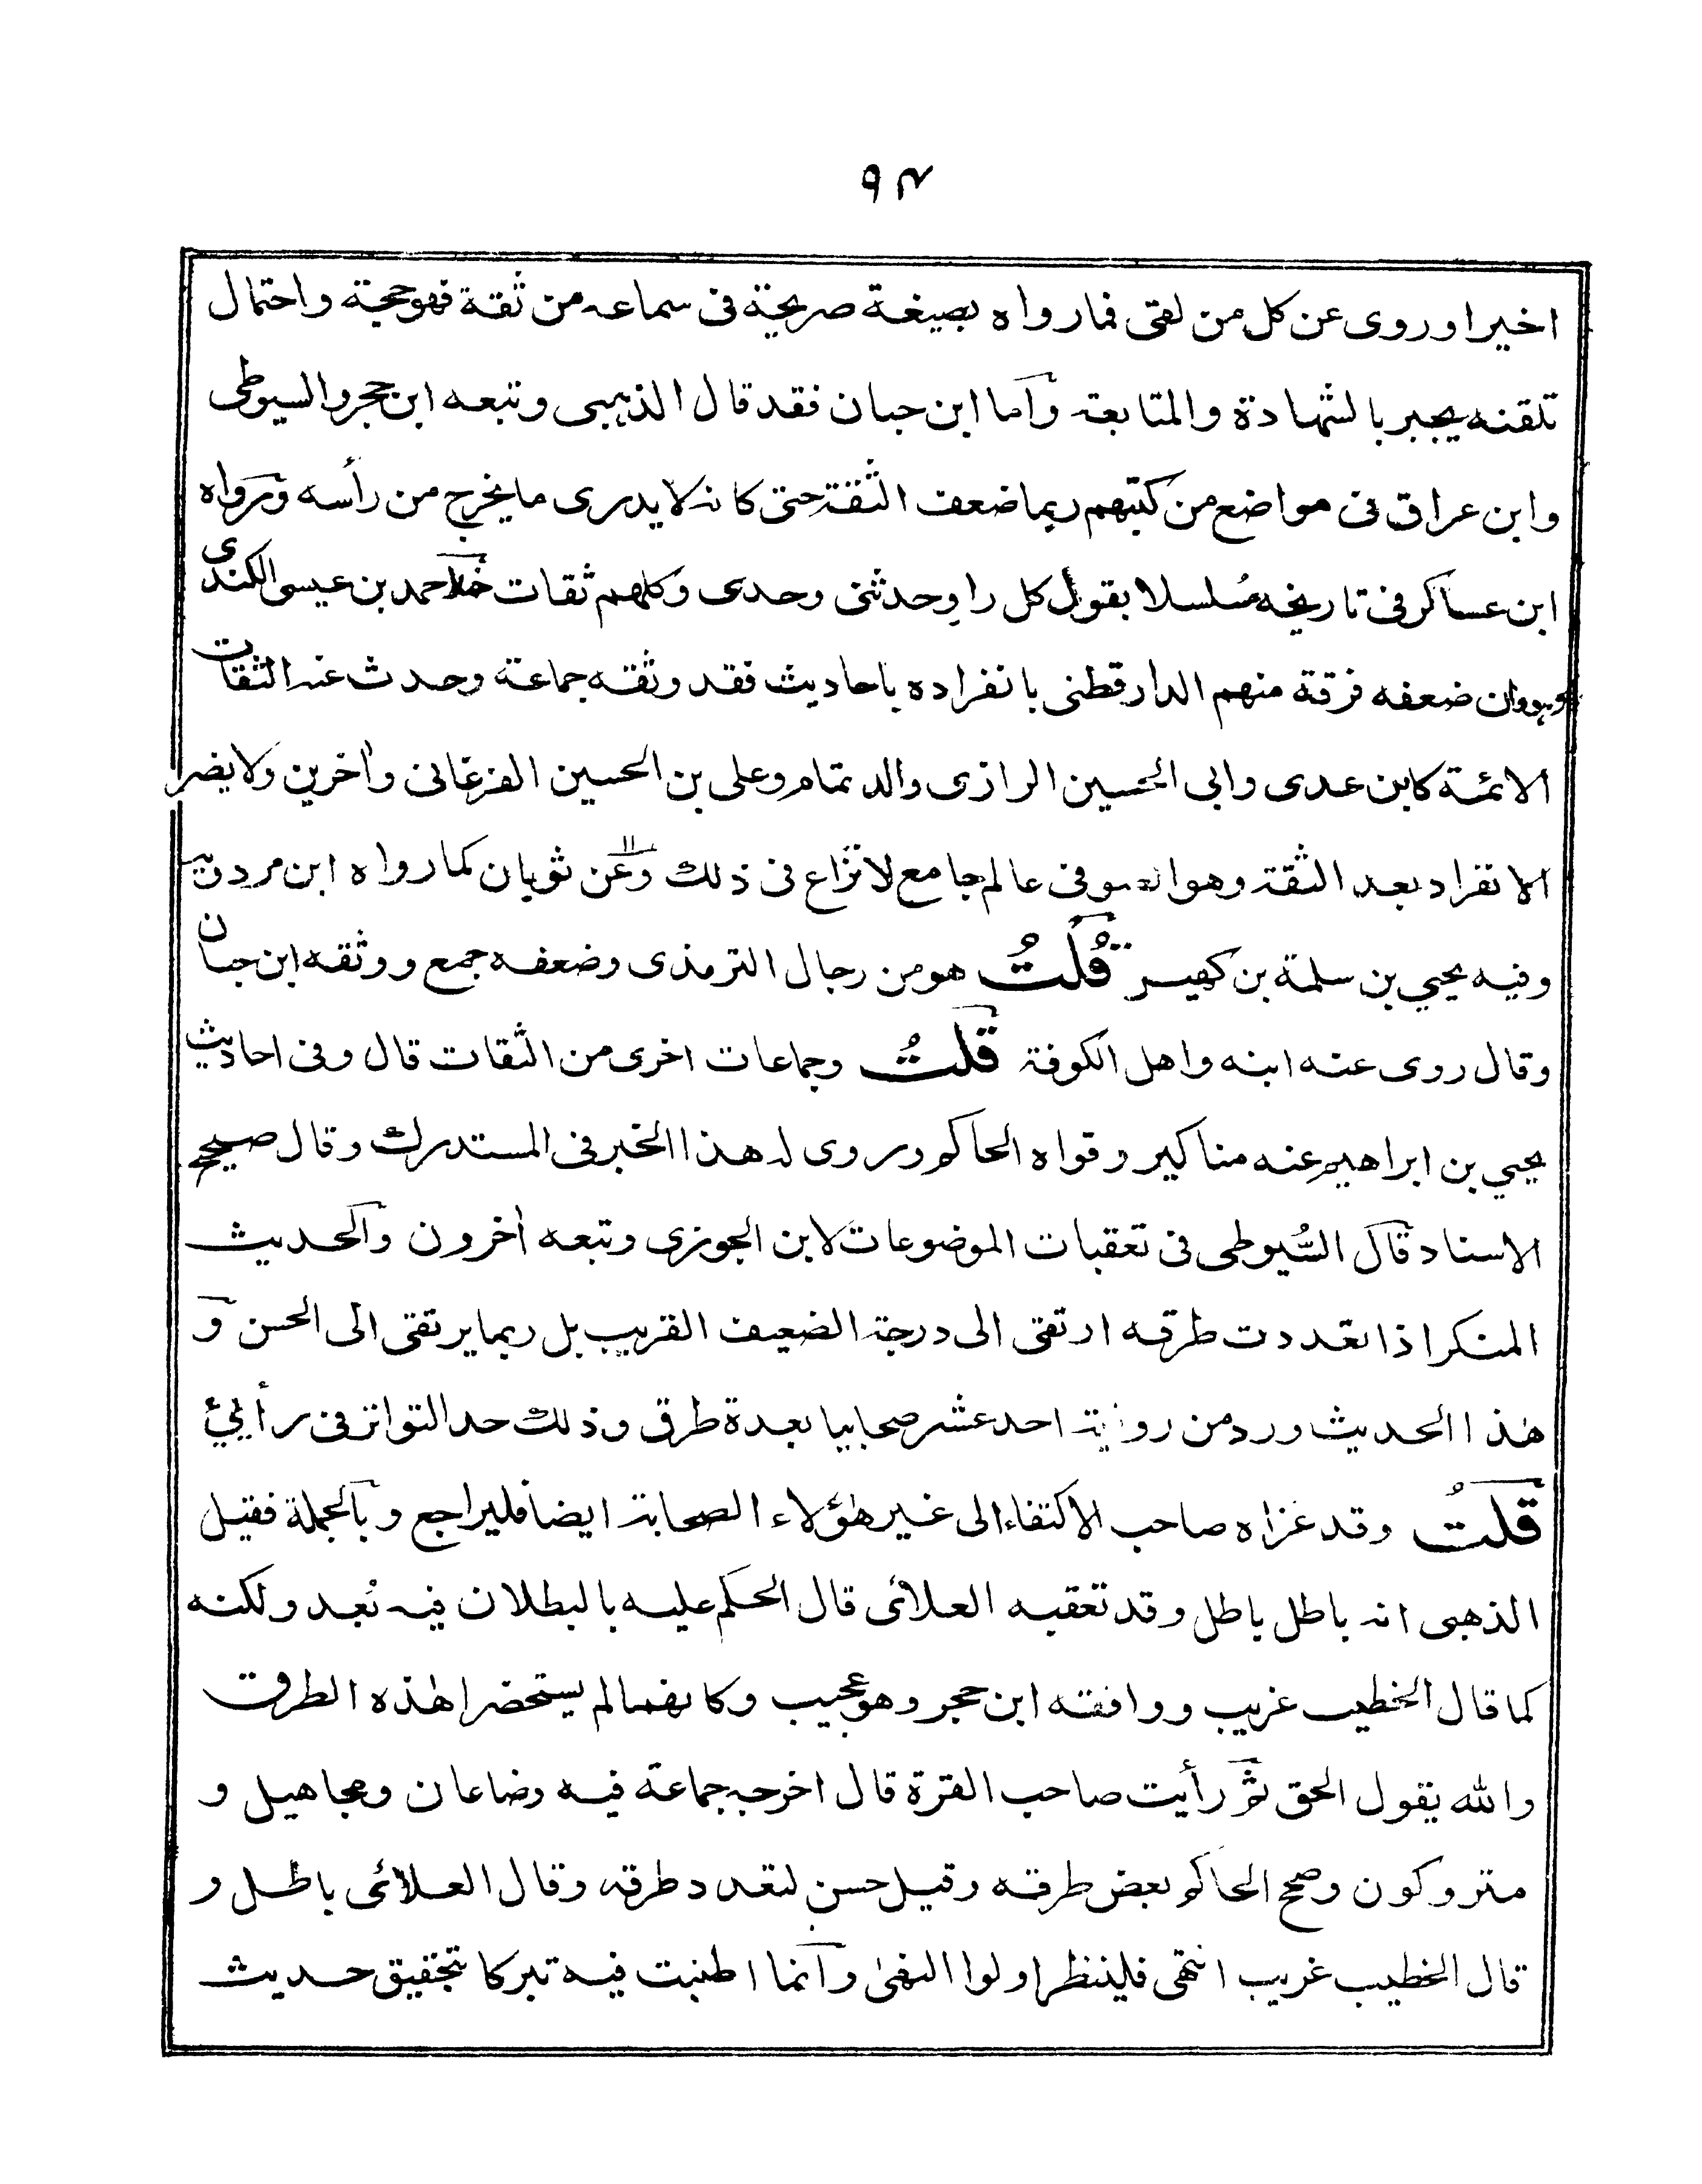 ٩٣
اخيرا وروى عن كل من لقى فما رواه بصيغة صريحة فى سماعه من ثقة فهو حجة واحتمال
تلقنه يجبر بالشهادة والمتابعة وأما ابن حبان فقد قال الذهبى وتبعه ابن حجر والسيوطى
وابن عراق فى مواضع من كتبهم ربما ضعف الثقة حتى كانه لا يدرى ما يخرج من رأسه ورواه
ابن عساكر فى تاريخه مُسلسلا بقول كل راوٍ حدثنى وحدى وكلهم ثقات خلا احمد بن عيسى الكندى
وهو وان ضعفه فرقة منهم الدارقطنى بانفراده باحاديث فقد وثقه جماعة وحدث عنه الثقات
الائمة كابن عدى وابى الحسين الرازى والد تمام وعلى بن الحسين الفرغانى وأخرين ولا يضر
الانفراد بعد الثقة وهو الصوفى عالم جامع لا نزاع فى ذلك وعن ثوبان كما رواه ابن مردويه
وفيه يحيي بن سلمة بن كهيل قُلتُ هو من رجال الترمذى وضعفه جمع ووثقه ابن حبان
وقال روى عنه ابنه واهل الكوفة قلتُ وجماعات اخرى من الثقات قال وفى احاديث
يحيي بن ابراهيم عنه مناكير وقواه الحاكم وروى له هذا الخبر فى المستدرك وقال صحيح
الاسناد قال السُّيوطى فى تعقبات الموضوعات لابن الجوزى وتبعه أخرون والحديث
المنكر اذا تعددت طرقه ارتقى الى درجة الضعيف القريب بل ربما يرتقى الى الحسن و
هذا الحديث ورد من رواية احد عشر صحابيا بعدة طرق وذلك حد التواتر فى رأيئ
قلتُ وقد عزاه صاحب الاكتفاء الى غير هؤلاء الصحابة ايضا فليراجع وبالجملة فقيل
الذهبى انه باطل باطل وقد تعقبه العلائى قال الحكم عليه بالبطلان فيه بُعد ولكنه
كما قال الخطيب غريب ووافقته ابن حجر وهو عجيب وكانهما لم يستحضرا هذه الطرق
والله يقول الحق ثم رأيت صاحب القرة قال اخرجه جماعة فيه وضاعان ومجاهيل و
متروكون وصحح الحاكم بعض طرقه وقيل حسن لتعدد طرقه وقال العلائى باطل و
قال الخطيب غريب انتهى فلينظر اولوا النهىٰ وأنما اطنبت فيه تبركا بتحقيق حديث